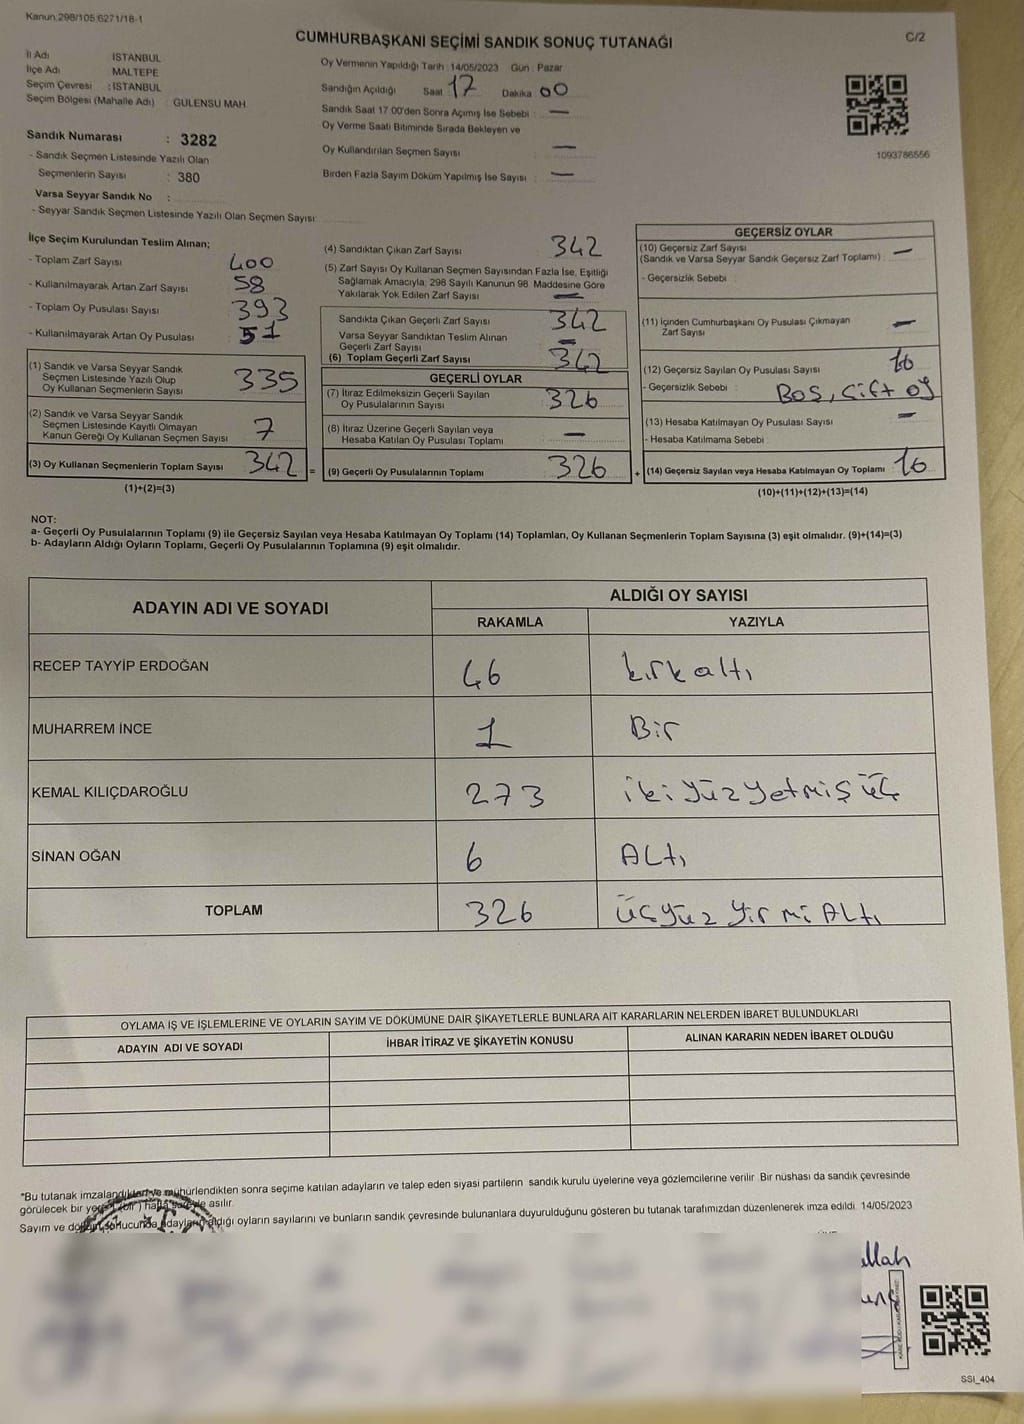 Kanun:298/105;6271/18-1
CUMHURBAŞKANI SEÇİMİ SANDIK SONUÇ TUTANAĞI
C/2
İl Adı İSTANBUL
İlçe Adı MALTEPE
Seçim Çevresi : İSTANBUL
Seçim Bölgesi (Mahalle Adı) GÜLENSU MAH
Oy Vermenin Yapıldığı Tarih : 14/05/2023 Gün : Pazar
Sandığın Açıldığı Saat 17 Dakika 00
Sandık Saat 17:00'den Sonra Açımış İse Sebebi : —
Oy Verme Saati Bitiminde Sırada Bekleyen ve
Oy Kullandırılan Seçmen Sayısı : —
Birden Fazla Sayım Döküm Yapılmış İse Sayısı : —
1093786556
Sandık Numarası : 3282
- Sandık Seçmen Listesinde Yazılı Olan
Seçmenlerin Sayısı : 380
Varsa Seyyar Sandık No :
- Seyyar Sandık Seçmen Listesinde Yazılı Olan Seçmen Sayısı:
İlçe Seçim Kurulundan Teslim Alınan;
- Toplam Zarf Sayısı : 400
- Kullanılmayarak Artan Zarf Sayısı : 58
- Toplam Oy Pusulası Sayısı : 393
- Kullanılmayarak Artan Oy Pusulası : 51
(1) Sandık ve Varsa Seyyar Sandık
Seçmen Listesinde Yazılı Olup
Oy Kullanan Seçmenlerin Sayısı 335
(2) Sandık ve Varsa Seyyar Sandık
Seçmen Listesinde Kayıtlı Olmayan
Kanun Gereği Oy Kullanan Seçmen Sayısı 7
(3) Oy Kullanan Seçmenlerin Toplam Sayısı 342 =
(1)+(2)=(3)
(4) Sandıktan Çıkan Zarf Sayısı 342
(5) Zarf Sayısı Oy Kullanan Seçmen Sayısından Fazla İse, Eşitliği
Sağlamak Amacıyla; 298 Sayılı Kanunun 98. Maddesine Göre
Yakılarak Yok Edilen Zarf Sayısı —
Sandıkta Çıkan Geçerli Zarf Sayısı 342
Varsa Seyyar Sandıktan Teslim Alınan
Geçerli Zarf Sayısı —
(6) Toplam Geçerli Zarf Sayısı 342
GEÇERLİ OYLAR
(7) İtiraz Edilmeksizin Geçerli Sayılan
Oy Pusulalarının Sayısı 326
(8) İtiraz Üzerine Geçerli Sayılan veya
Hesaba Katılan Oy Pusulası Toplamı —
(9) Geçerli Oy Pusulalarının Toplamı 326 +
GEÇERSİZ OYLAR
(10) Geçersiz Zarf Sayısı
(Sandık ve Varsa Seyyar Sandık Geçersiz Zarf Toplamı) : —
- Geçersizlik Sebebi :
(11) İçinden Cumhurbaşkanı Oy Pusulası Çıkmayan
Zarf Sayısı —
(12) Geçersiz Sayılan Oy Pusulası Sayısı 16
- Geçersizlik Sebebi : Boş, Çift oy
(13) Hesaba Katılmayan Oy Pusulası Sayısı —
- Hesaba Katılmama Sebebi
(14) Geçersiz Sayılan veya Hesaba Katılmayan Oy Toplamı 16
(10)+(11)+(12)+(13)=(14)
NOT:
a- Geçerli Oy Pusulalarının Toplamı (9) ile Geçersiz Sayılan veya Hesaba Katılmayan Oy Toplamı (14) Toplamları, Oy Kullanan Seçmenlerin Toplam Sayısına (3) eşit olmalıdır. (9)+(14)=(3)
b- Adayların Aldığı Oyların Toplamı, Geçerli Oy Pusulalarının Toplamına (9) eşit olmalıdır.
ADAYIN ADI VE SOYADI ALDIĞI OY SAYISI
RAKAMLA YAZIYLA
RECEP TAYYİP ERDOĞAN 46 kırkaltı
MUHARREM İNCE 1 Bir
KEMAL KILIÇDAROĞLU 273 ikiyüzyetmişüç
SİNAN OĞAN 6 Altı
TOPLAM 326 üçyüz yirmi Altı
OYLAMA İŞ VE İŞLEMLERİNE VE OYLARIN SAYIM VE DÖKÜMÜNE DAİR ŞİKAYETLERLE BUNLARA AİT KARARLARIN NELERDEN İBARET BULUNDUKLARI
ADAYIN ADI VE SOYADI İHBAR İTİRAZ VE ŞİKAYETİN KONUSU ALINAN KARARIN NEDEN İBARET OLDUĞU
*Bu tutanak imzalandıktan ve mühürlendikten sonra seçime katılan adayların ve talep eden siyasi partilerin sandık kurulu üyelerine veya gözlemcilerine verilir. Bir nüshası da sandık çevresinde
görülecek bir yere 1 (bir) hafta süreyle asılır.
Sayım ve döküm sonucunda adayların aldığı oyların sayılarını ve bunların sandık çevresinde bulunanlara duyurulduğunu gösteren bu tutanak tarafımızdan düzenlenerek imza edildi. 14/05/2023
SSİ_404